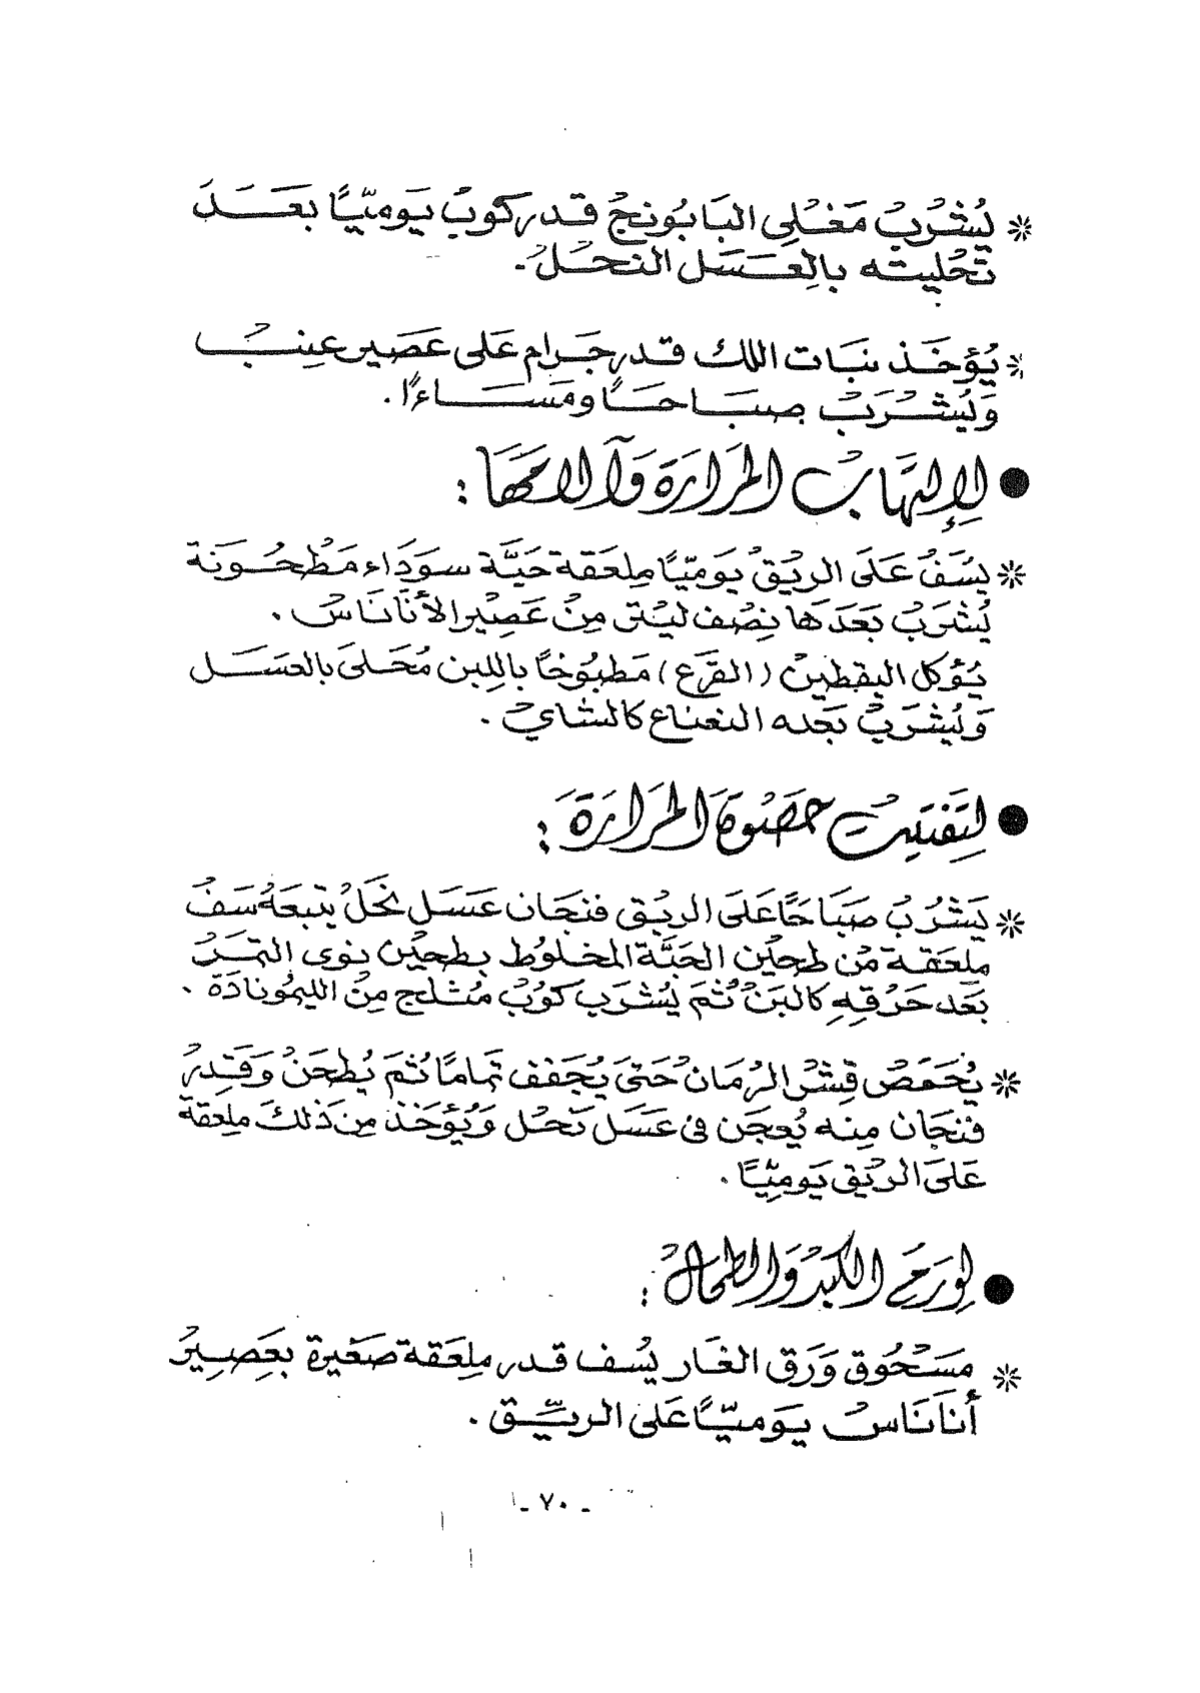 * يُشْرَبُ مَغْلِى البَابُونجْ قدركوبْ يَوميًّا بعَدَ
تَحْليته بالعَسَل النحْلْ.
* يُؤخَذ نبَات اللك قدرجَرام عَلى عَصَيرعِنبْ
وَيُشْرَبْ صبَاحًا ومَسَاءًا.
● لِإلتهَابْ المرَارَة وَآلامَهَا :
* يسَفُ عَلَى الريْقْ يَوَميًّا مِلعَقة حَبَّة سَودَاء مَطْحُونَة
يُشْرَبُ بَعَدَهَا نِصْف ليْتر مِنْ عَصِيْرالأنَانَاسْ .
يُؤكل اليقطينْ ( القرَع ) مَطبُوخًا باللِبن مُحَلىَ بالعسَل
وَيُشرَبْ بَعْده النعناع كالشايْ .
● لِتَفتيتْ حَصْوَة المرَارَة :
* يَشْرُبُ صَبَاحًا عَلَى الريْق فنجَان عَسَل نحَلْ يتبعَهُ سَفُ
ملعَقة مْن طحيْن الحَبَّة المخلوُط بطحيْن نوى التمرْ
بَعَد حَرْقِهِ كالبَنْ ثُمَ يُشرَب كوُبْ مُثلج مِنْ الليمُونادَة .
* يُحَمَصْ قِشْر الرُمَانْ حَتىَ يُجَفف تمامًا ثُمَ يُطحَنْ وَقَدِرْ
فنجَان مِنه يُعجَن فى عَسَل نَحْل وَيُؤخَذ مِن ذلكَ مِلعقة
عَلىَ الريْق يَوميًّا .
● لِوَرَمَ الكَبدْ وَالطحَالْ :
* مَسَحُوق وَرَق الغَار يُسف قدر مِلعَقة صَغيْرة بعَصِيْر
أناَنَاسْ يَوميًّا عَلىَ الريّق .
- ٧٠ -